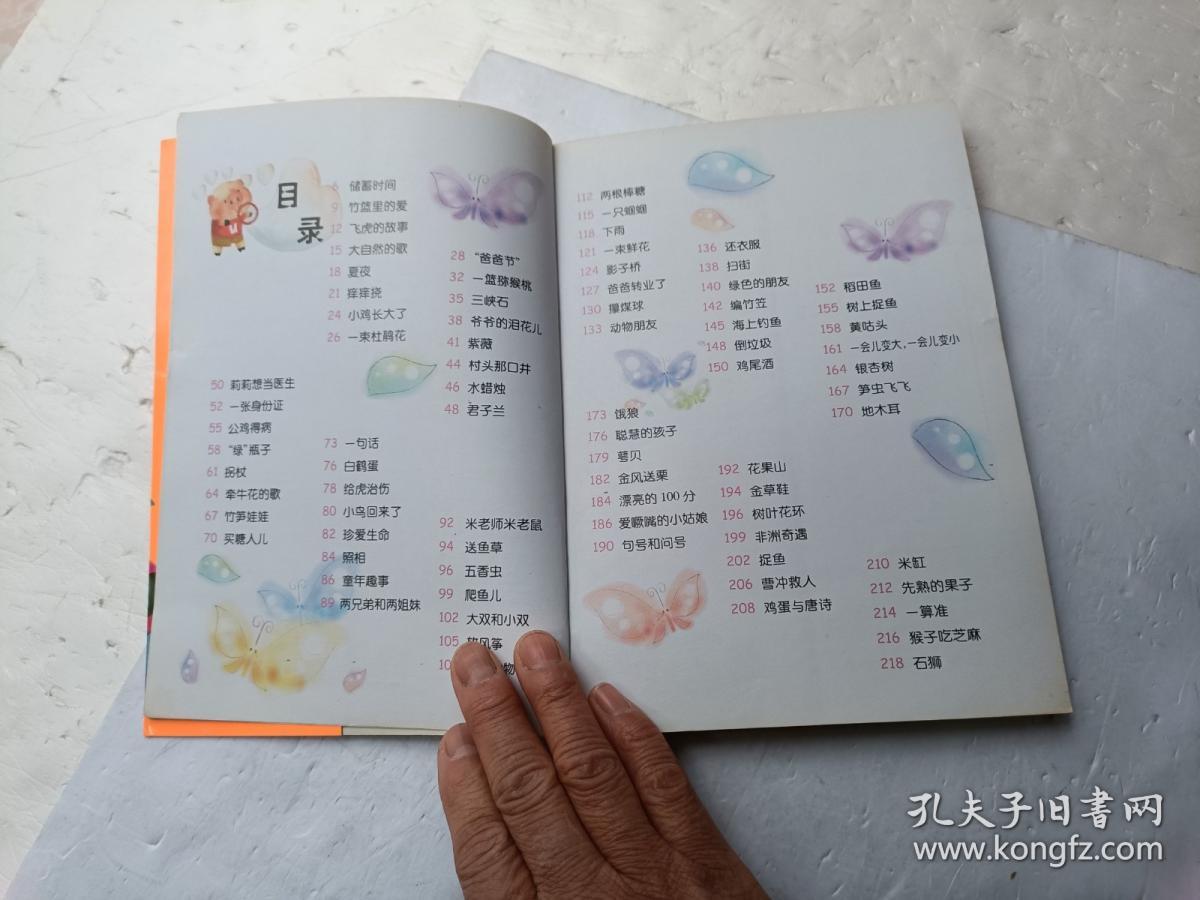 目录
6 储蓄时间
9 竹篮里的爱
12 飞虎的故事
15 大自然的歌
18 夏夜
21 痒痒挠
24 小鸡长大了
26 一束杜鹃花
28 “爸爸节”
32 一篮猕猴桃
35 三峡石
38 爷爷的泪花儿
41 紫薇
44 村头那口井
46 水蜡烛
48 君子兰
50 莉莉想当医生
52 一张身份证
55 公鸡得病
58 “绿”瓶子
61 拐杖
64 牵牛花的歌
67 竹笋娃娃
70 买糖人儿
73 一句话
76 白鹤蛋
78 给虎治伤
80 小鸟回来了
82 珍爱生命
84 照相
86 童年趣事
89 两兄弟和两姐妹
92 米老师米老鼠
94 送鱼草
96 五香虫
99 爬鱼儿
102 大双和小双
105 放风筝
物
112 两根棒糖
115 一只蝈蝈
118 下雨
121 一束鲜花
124 影子桥
127 爸爸转业了
130 攥煤球
133 动物朋友
136 还衣服
138 扫街
140 绿色的朋友
142 编竹笠
145 海上钓鱼
148 倒垃圾
150 鸡尾酒
152 稻田鱼
155 树上捉鱼
158 黄咕头
161 一会儿变大,一会儿变小
164 银杏树
167 笋虫飞飞
170 地木耳
173 饿狼
176 聪慧的孩子
179 萼贝
182 金风送栗
184 漂亮的100分
186 爱噘嘴的小姑娘
190 句号和问号
192 花果山
194 金草鞋
196 树叶花环
199 非洲奇遇
202 捉鱼
206 曹冲救人
208 鸡蛋与唐诗
210 米缸
212 先熟的果子
214 一算准
216 猴子吃芝麻
218 石狮
孔夫子旧书网
www.kongfz.com